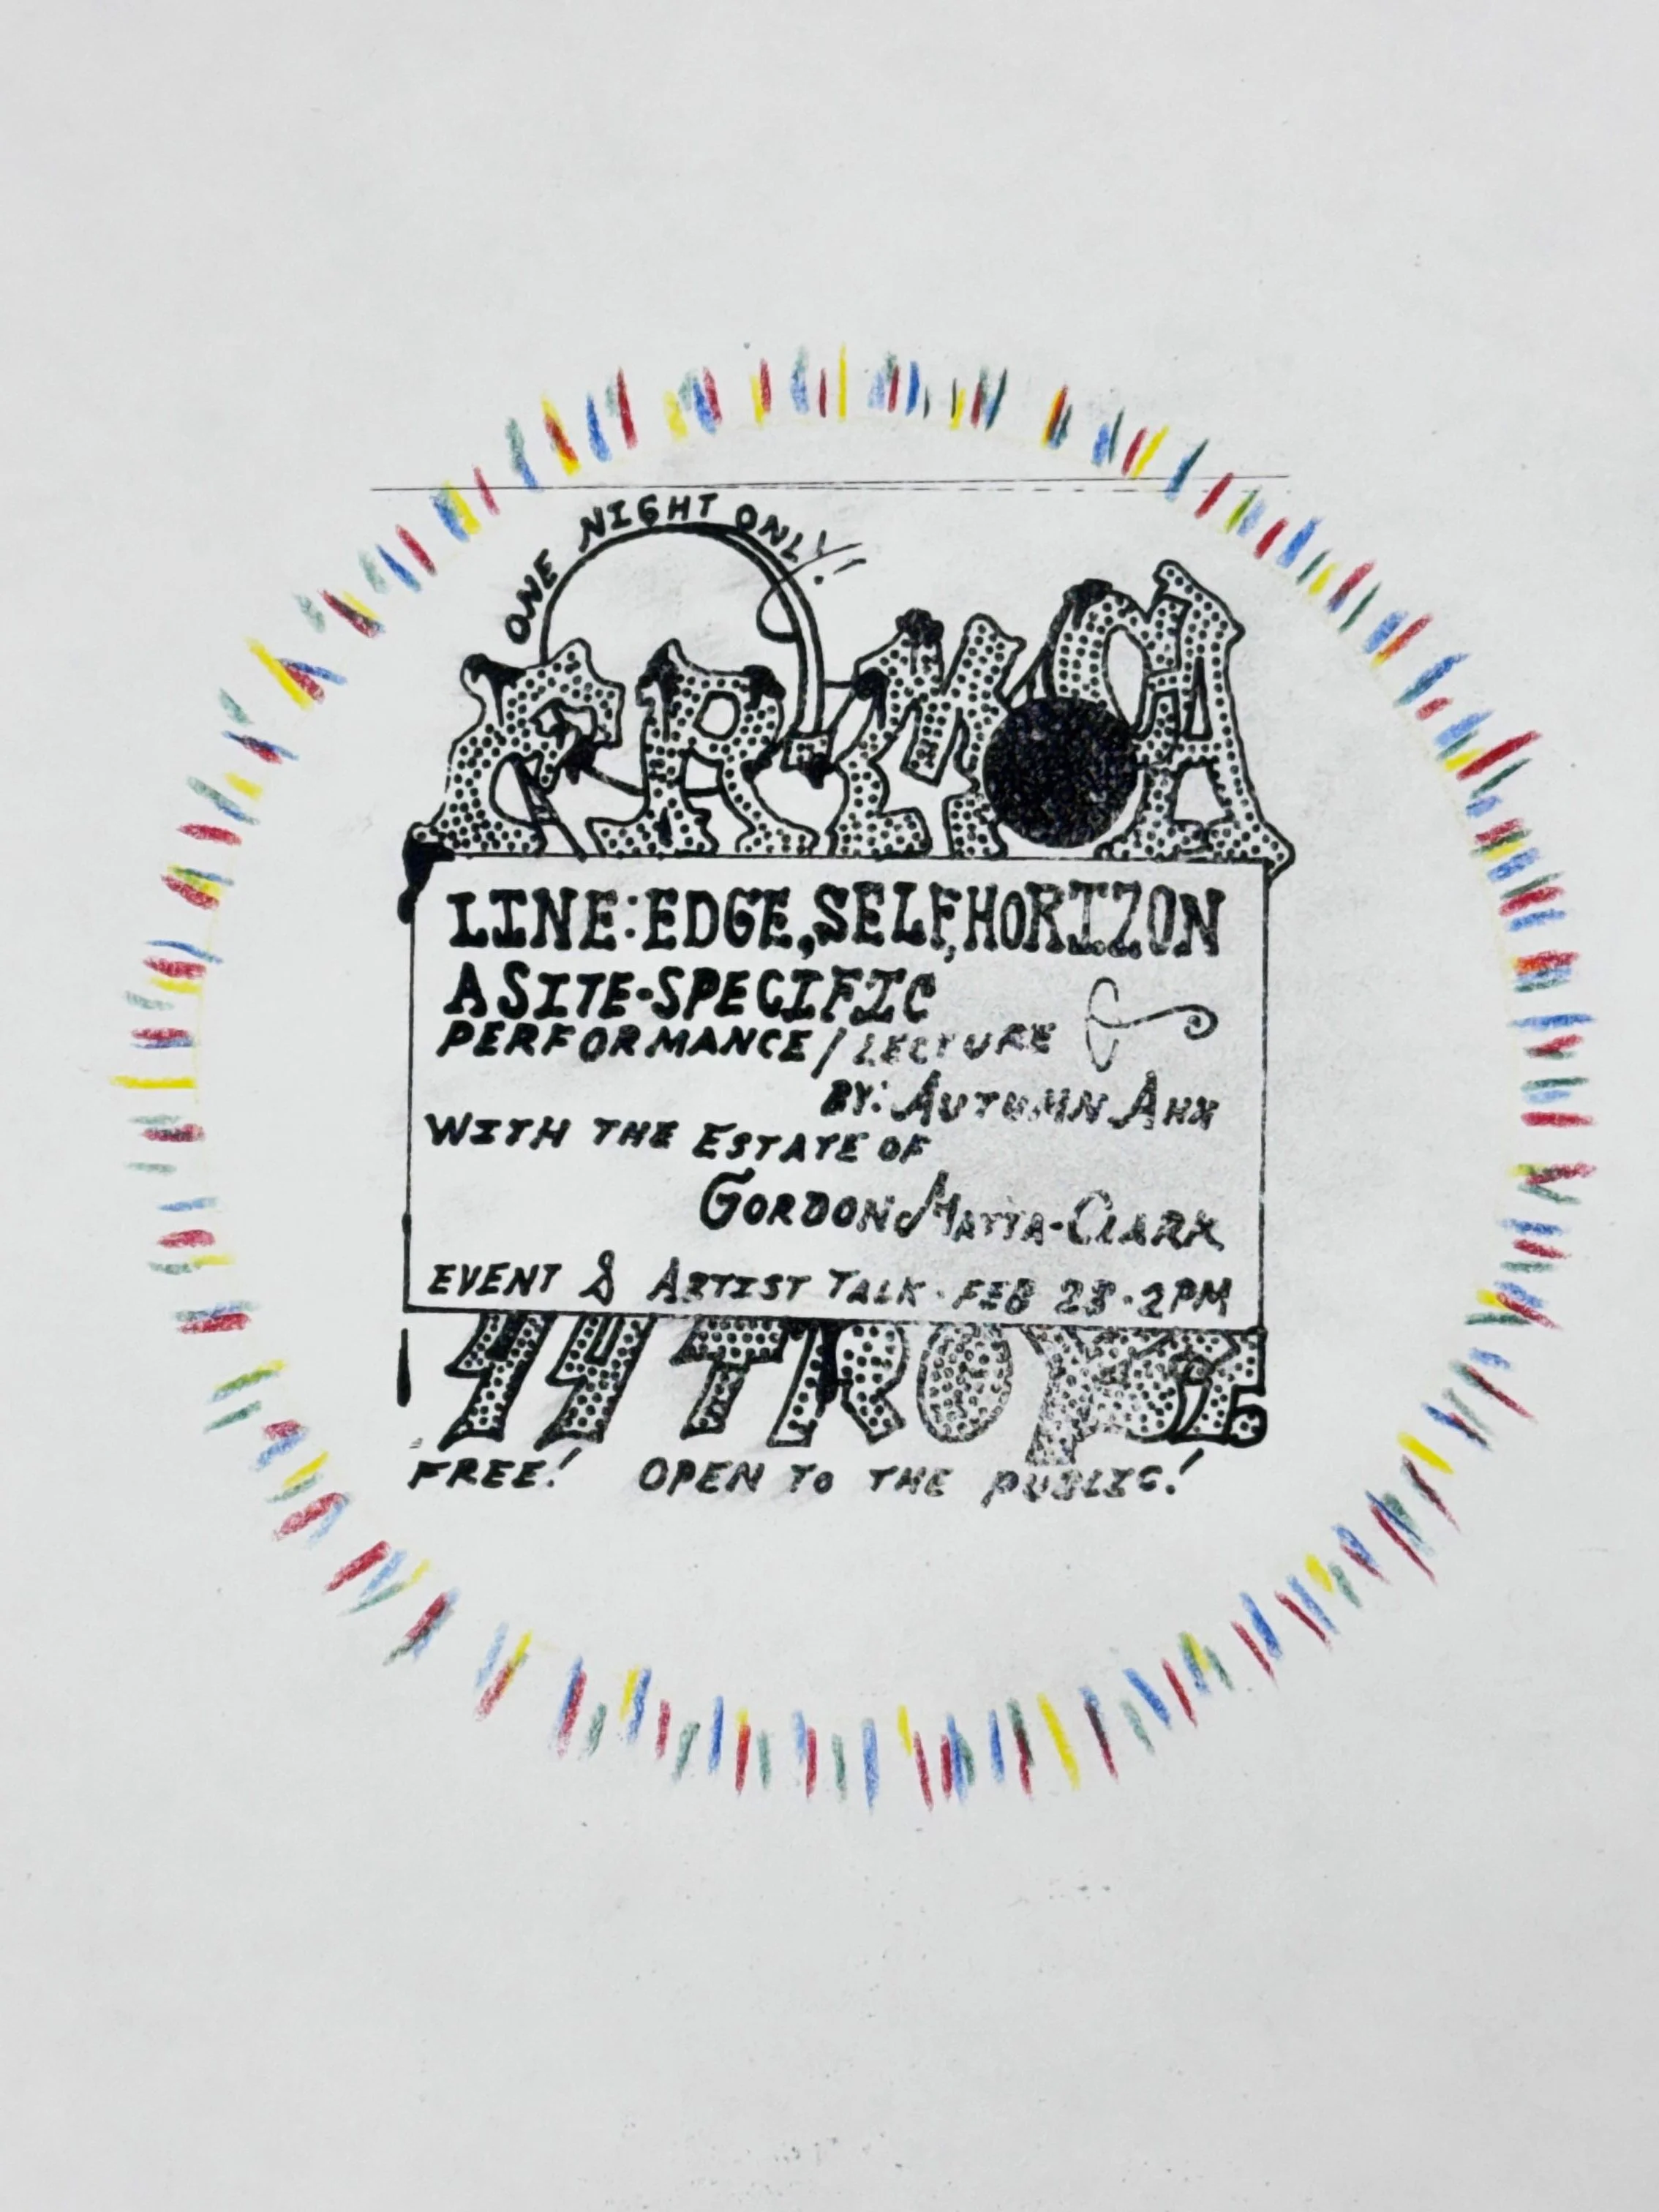 ONE NIGHT ONLY!
FRMOCA
LINE:EDGE,SELF,HORIZON
A SITE-SPECIFIC
PERFORMANCE/LECTURE
BY: AUTUMN AHN
WITH THE ESTATE OF
GORDON MATTA-CLARK
EVENT & ARTIST TALK · FEB · 2PM
44 TROY ST.
FREE! OPEN TO THE PUBLIC!